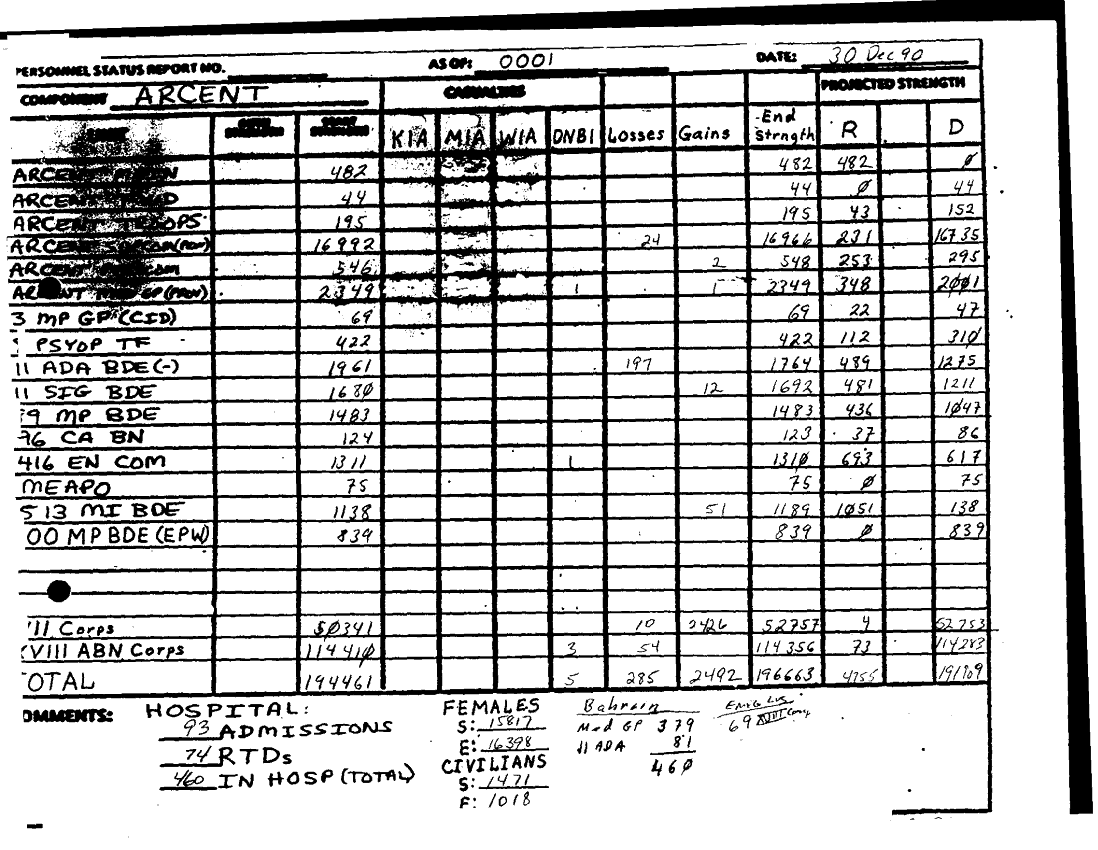 PERSONNEL STATUS REPORT NO. AS OF: 0001 DATE: 30 Dec 90
COMPONENT ARCENT CASUALTIES PROJECTED STRENGTH
KIA MIA WIA DNBI Losses Gains End Strngth R D
ARCENT 482 482 482 ∅
ARCENT 44 44 ∅ 44
ARCENT TROOPS 195 195 43 152
ARCENT 16992 24 16966 231 16735
ARCENT 546 2 548 253 295
ARCENT MED GP (PROV) 2349 1 1 2349 348 2001
3 MP GP (CID) 69 69 22 47
PSYOP TF 422 422 112 310
11 ADA BDE (-) 1961 197 1764 489 1275
11 SIG BDE 1680 12 1692 481 1211
9 MP BDE 1483 1483 436 1047
96 CA BN 124 123 37 86
416 EN COM 1311 1 1310 693 617
MEAPO 75 75 ∅ 75
513 MI BDE 1138 51 1189 1051 138
00 MP BDE (EPW) 839 839 ∅ 839
VII Corps 50341 10 2426 52757 4 52753
XVIII ABN Corps 114410 3 54 114356 73 114283
TOTAL 194461 5 285 2492 196663 4755
COMMENTS: HOSPITAL:
93 ADMISSIONS
74 RTDs
460 IN HOSP (TOTAL)
FEMALES
S: 15817
E: 16398
CIVILIANS
S: 1471
F: 1018
Bahrain
Med GP 379
11 ADA 81
460
69